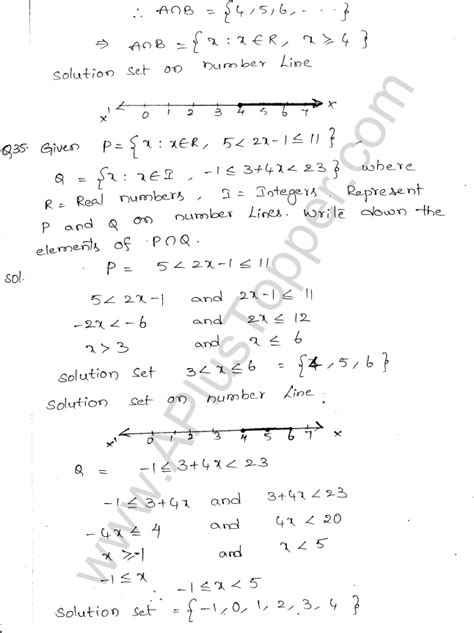 ∴ A∩B = {4, 5, 6, ....}
⇒ A∩B = {x : x∈R, x ≥ 4}
Solution set on number Line
x' 0 1 2 3 4 5 6 7 x
Q35. Given P = {x : x∈R, 5 < 2x-1 ≤ 11},
Q = {x : x∈I, -1 ≤ 3+4x < 23} where
R = Real numbers, I = Integers Represent
P and Q on number Lines. Write down the
elements of P∩Q.
Sol. P = 5 < 2x-1 ≤ 11
5 < 2x-1 and 2x-1 ≤ 11
-2x < -6 and 2x ≤ 12
x > 3 and x ≤ 6
Solution set 3 < x ≤ 6 = {4, 5, 6}
Solution set on number Line.
x' 0 1 2 3 4 5 6 7 x
Q = -1 ≤ 3+4x < 23
-1 ≤ 3+4x and 3+4x < 23
-4x ≤ 4 and 4x < 20
x ≥ -1 and x < 5
-1 ≤ x
∴ -1 ≤ x < 5
Solution set = {-1, 0, 1, 2, 3, 4}
www.APlusTopper.com